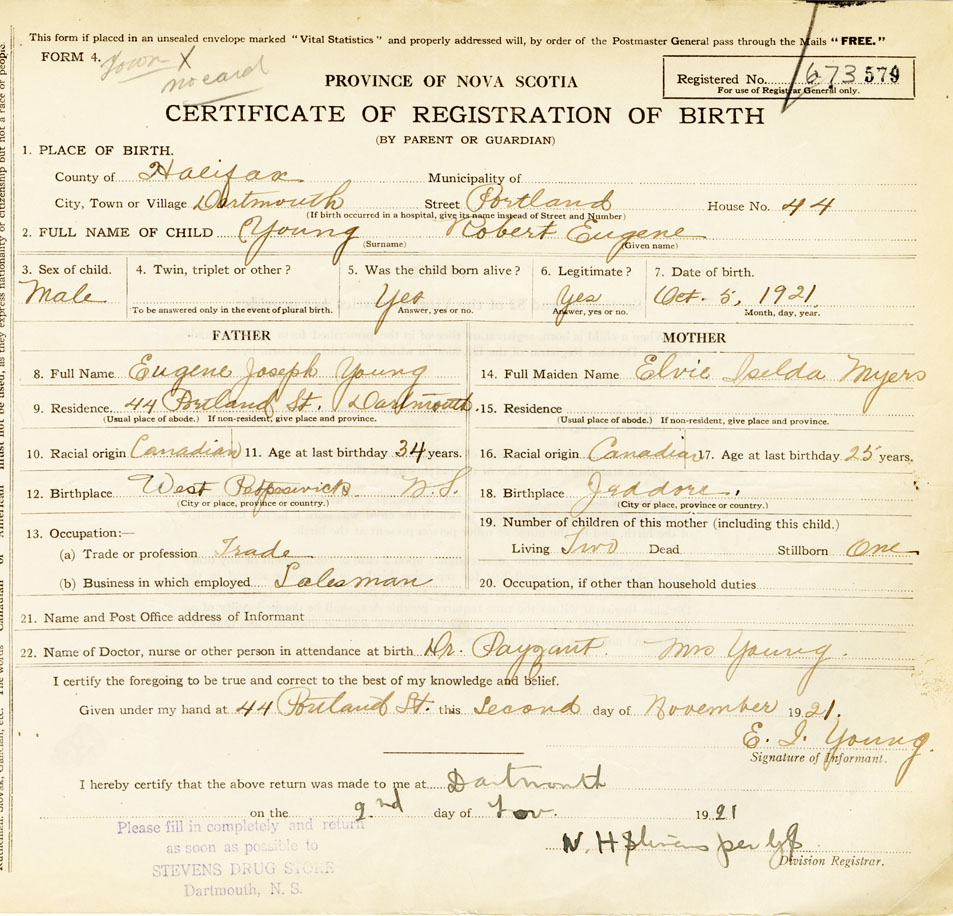 This form if placed in an unsealed envelope marked "Vital Statistics" and properly addressed will, by order of the Postmaster General pass through the Mails "FREE."
FORM 4. Town X
no card
Registered No. 673 579
For use of Registrar General only.
PROVINCE OF NOVA SCOTIA
CERTIFICATE OF REGISTRATION OF BIRTH
(BY PARENT OR GUARDIAN)
1. PLACE OF BIRTH.
County of Halifax Municipality of
City, Town or Village Dartmouth Street Portland House No. 44
(If birth occurred in a hospital, give its name instead of Street and Number)
2. FULL NAME OF CHILD Young Robert Eugene
(Surname) (Given name)
3. Sex of child. 4. Twin, triplet or other? 5. Was the child born alive? 6. Legitimate? 7. Date of birth.
Male Yes Yes Oct. 5, 1921
To be answered only in the event of plural birth. Answer, yes or no. Answer, yes or no. Month, day, year.
FATHER MOTHER
8. Full Name Eugene Joseph Young 14. Full Maiden Name Elvie Iselda Myers
9. Residence. 44 Portland St. Dartmouth. 15. Residence
(Usual place of abode.) If non-resident, give place and province. (Usual place of abode.) If non-resident, give place and province.
10. Racial origin Canadian 11. Age at last birthday 34 years. 16. Racial origin Canadian 17. Age at last birthday 25 years.
12. Birthplace West N.S. 18. Birthplace Jeddore.
(City or place, province or country.) (City or place, province or country.)
13. Occupation:— 19. Number of children of this mother (including this child.)
(a) Trade or profession Trade Living Two Dead Stillborn One
(b) Business in which employed Salesman 20. Occupation, if other than household duties
21. Name and Post Office address of Informant
22. Name of Doctor, nurse or other person in attendance at birth Dr. Payzant. Mrs Young.
I certify the foregoing to be true and correct to the best of my knowledge and belief.
Given under my hand at 44 Portland St. this Second day of November 1921.
E. J. Young.
Signature of Informant.
I hereby certify that the above return was made to me at Dartmouth
on the 2nd day of Nov. 1921
Please fill in completely and return
as soon as possible to
STEVENS DRUG STORE
Dartmouth, N. S.
W. H. Stevens per
Division Registrar.